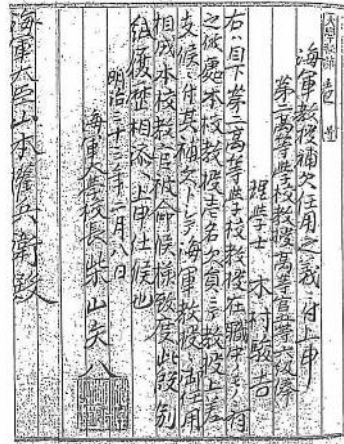 海軍教授補欠任用之義ニ付上申
第二高等学校教授高等官第六級俸
理学士 木村駿吉
右ハ目下第二高等学校教授在職中ニテ有
之候処本校教授壱名欠員ニテ教授上差
支候ニ付其補欠トシテ海軍教授ニ御任用
相成本校教官被命候様致度此段別
紙履歴相添ヘ上申仕候也
明治三十三年 月八日
海軍大学校長柴山矢八
海軍大臣山本権兵衛殿